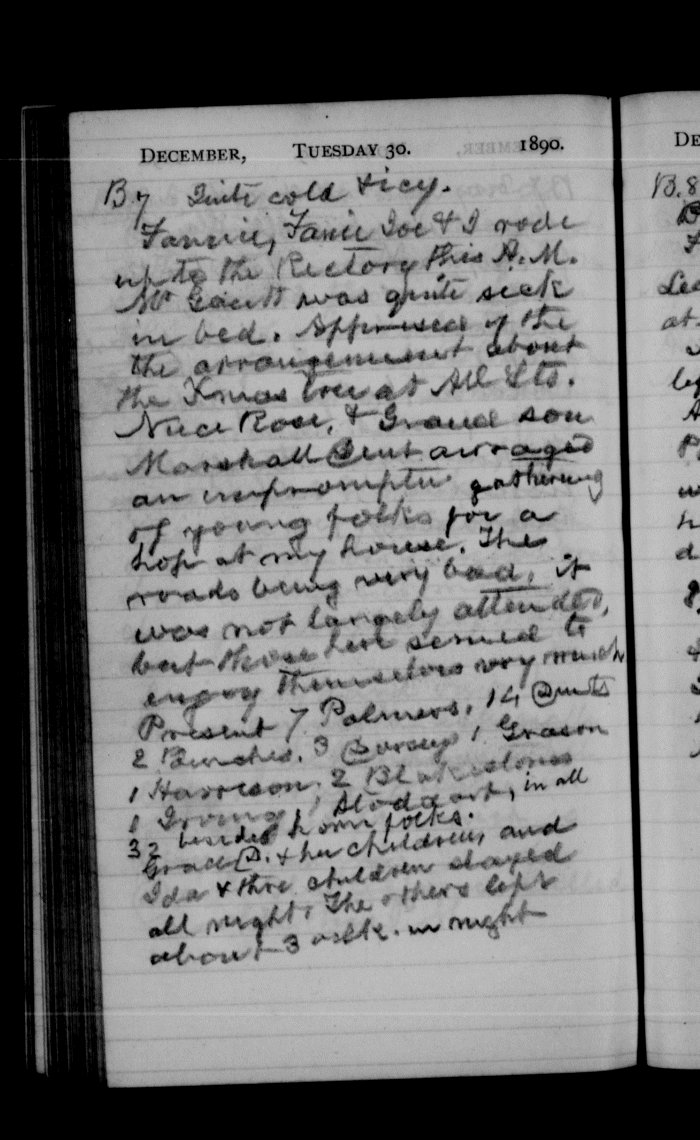 DECEMBER, TUESDAY 30. 1890.
B 7 Quite cold & icy.
Fannie, Fanie Joe & I rode
up to the Rectory this A.M.
Mr Gantt was quite sick
in bed. Apprised of the
the arrangement about
the Xmas tree at All Sts.
Niece Rose, & Grand son
Marshall Dent arraged
an impromptu gathering
of young folks for a
hop at my house. The
roads being very bad, it
was not largely attended,
but those here semed to
enjoy themselves very much
Present 7 Palmers, 14 Dents
2 Bunches. 3 Dorseys 1 Grason
1 Harrison. 2 Blakistones
1 Irving 1 Stoddart, in all
32 besides home folks.
Grace D. & her children, and
Ida & thre children stayed
all night. The others left
about 3 oclk. in night
DE
B. 8